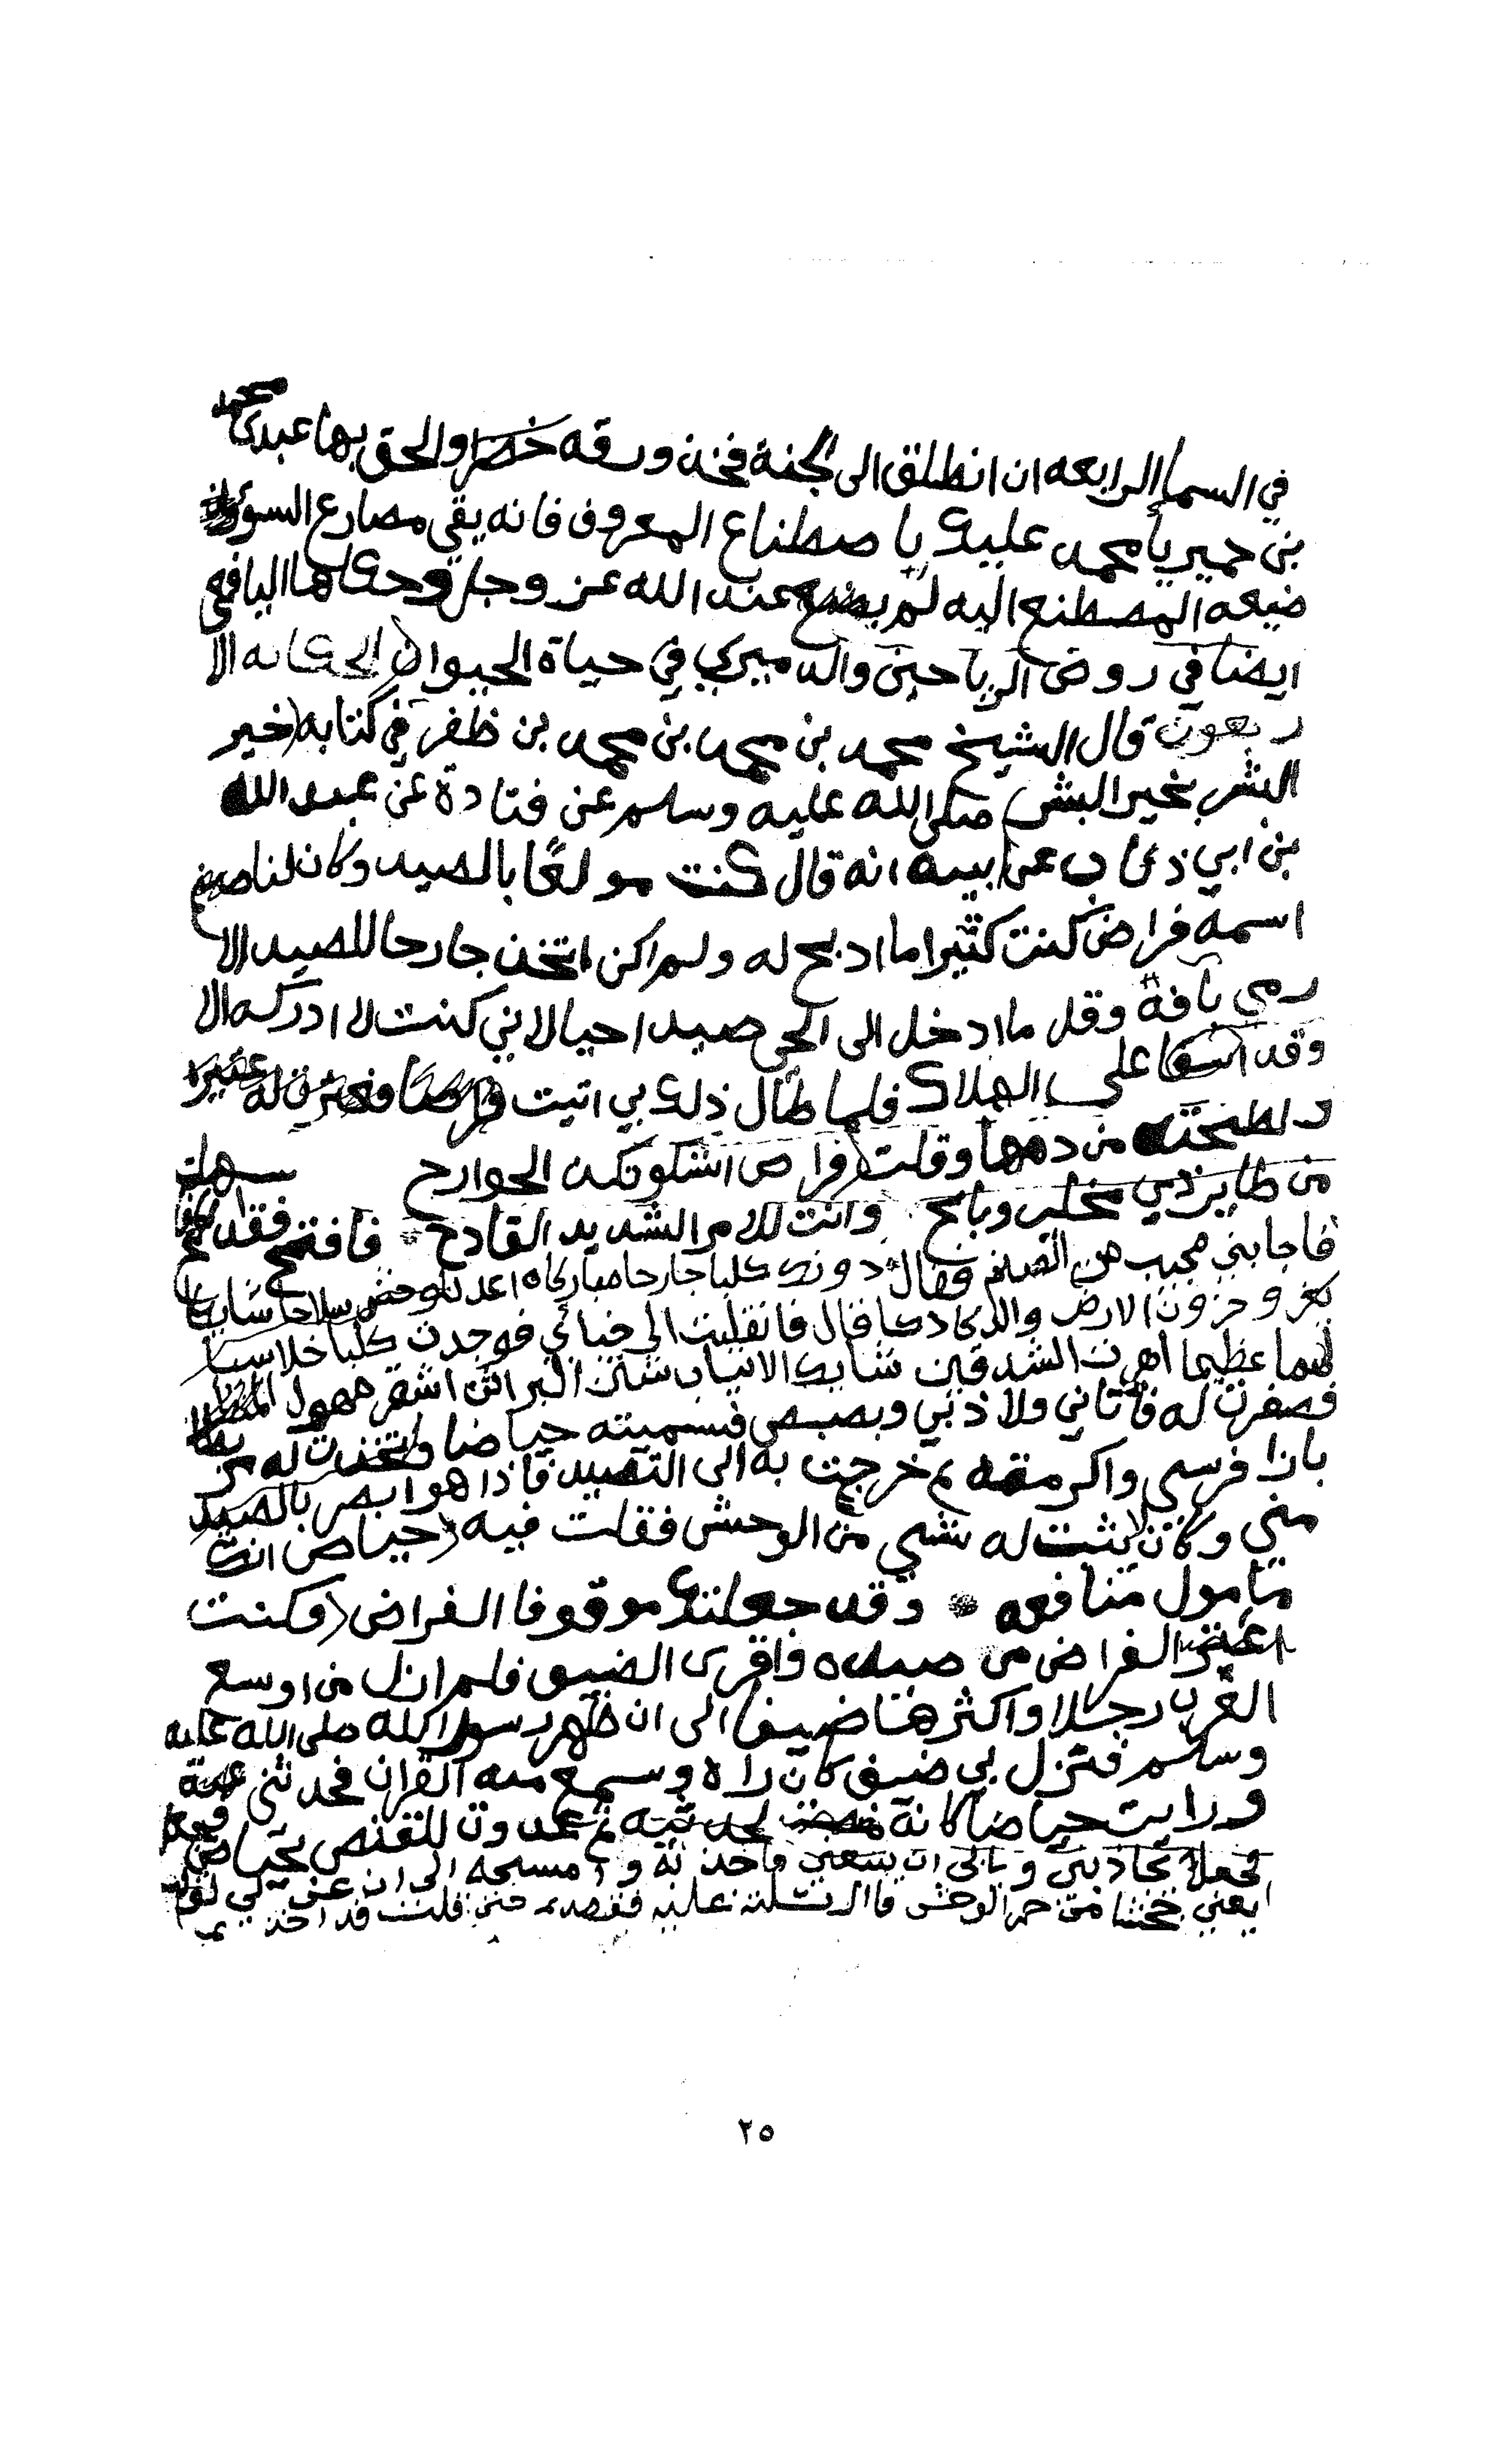 في السما الرابعه ان انطلق الى الجنة فخذ ورقه خضرا والحق بها عبدي محمد
بن حمير يا محمد عليك باصطناع المعروف فانه يقي مصارع السوء وان
ضيعه المصطنع اليه لم يضع عند الله عز وجل وحكاها اليافعي
ايضا في روض الرياحين والدميري في حياة الحيوان الحكايه الا
ربعون قال الشيخ محمد بن محمد بن محمد بن ظفر في كتابه (خير
البشر بخير البشر) صلى الله عليه وسلم عن قتادة عن عبد الله
بن ابي ذباب عن ابيه انه قال كنت مولعًا بالصيد وكان لنا صنم
اسمه فراض كنت كثيرا ما اذبح له ولم اكن اتخذ جارحا للصيد الا
رمي بآفة وقل ما ادخل الى الحي صيدا حيا لاني كنت لا ادركه الا
وقد اشفا على الهلاك فلما طال ذلك بي اتيت فراضا فعترت له عتيرة
ولطخته من دمها وقلت (فراض اشكو نكد الجوارح
من طاير ذي مخلب ونابح وانت للامر الشديد القادح * فافتح فقد سهلت
فاجابني مجيب من الصنم فقال دونك كلبا جارحا مباركا اعد للوحش سلاحا شابكا
يغزو حزون الارض والدكادكا قال فانقلبت الى خبائي فوجدت كلبا خلاسيا
بهما عظيما اهرت الشدقين شابك الانياب شثن البراثن اشقر مهول المنظر
فصفرت له فاتاني ولاذ بي وبصبص فسميته حياضا واتخذت له مربطا
بازا فرسي واكرمته ثم خرجت به الى الصيد فاذا هو ابصر بالصيد
مني وكان لا يثبت له شي من الوحش فقلت فيه (حياض انك
مامول منافعه * وقد جعلتك موقوفا لفراض (وكنت
اعتر لفراض من صيده واقري الضيف فلم ازل من اوسع
العرب رحلا واكثرها ضيفا الى ان ظهر رسول الله صلى الله عليه
وسلم فنزل بي ضيف كان راه وسمع منه القران فحدثني عنه
ورايت حياضا كانه ينصت لحديثه ثم غدوت للقنص بحياض
فجعل يجاذبني ويابى ان يتبعني فاخذته وامسحه الى ان عن لي تولب
يعني جحشا من حمر الوحش فارسلته عليه فقصده حتى قلت قد اخذه
٢٥